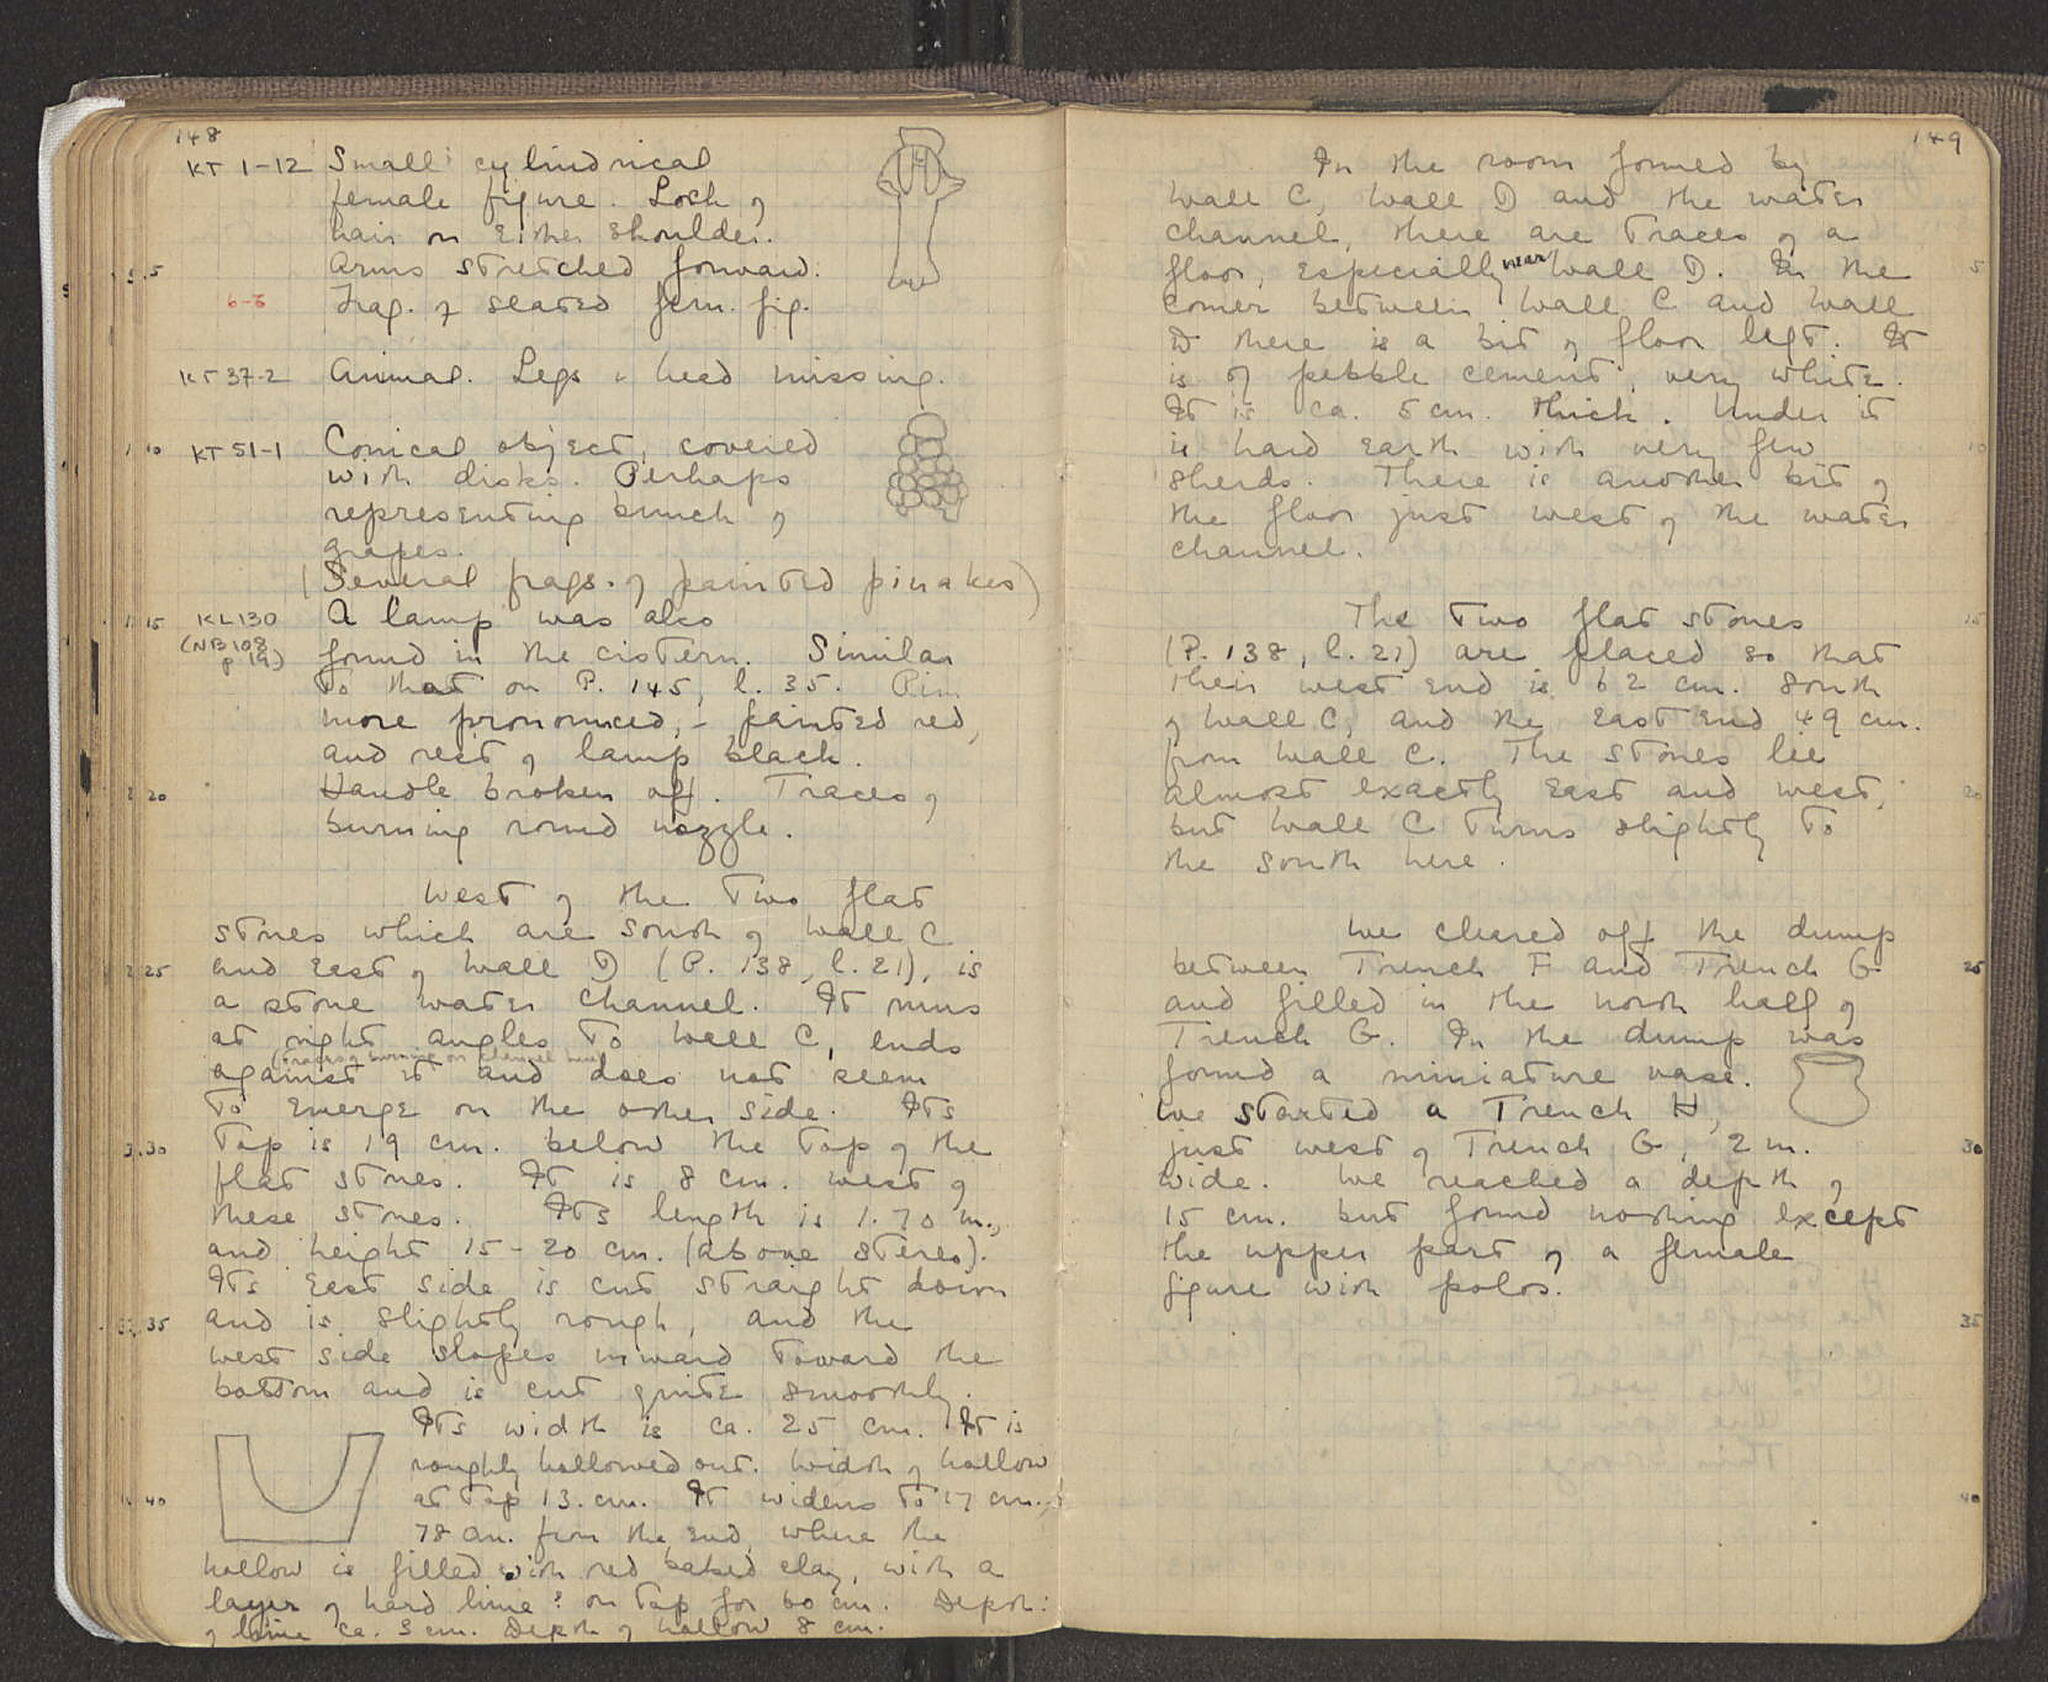 148
KT 1-12 Small cylindrical
female figure. Lock of
hair on either shoulder.
5 Arms stretched forward.
Frag. of seated fem. fig.
KT 37-2 Animal. Legs & head missing.
10 KT 51-1 Conical object, covered
with disks. Perhaps
representing bunch of
grapes.
(Several frags. of painted pinakes)
15 KL130 A lamp was also
(NB 108 p 19) found in the cistern. Similar
to that on P. 145, l. 35. Rim
more pronounced, - painted red,
and rest of lamp black.
20 Handle broken off. Traces of
burning round nozzle.
West of the two flat
stones which are south of Wall C
25 and East of Wall D (P. 138, l. 21), is
a stone water channel. It runs
at right angles to Wall C, ends
(traces of burning on channel here)
against it and does not seem
to emerge on the other side. Its
30 top is 19 cm. below the top of the
flat stones. It is 8 cm. west of
these stones. Its length is 1.70 m.,
and height 15-20 cm. (above stereo).
Its East side is cut straight down
35 and is slightly rough, and the
west side slopes inward toward the
bottom and is cut quite smoothly.
Its width is ca. 25 cm. It is
roughly hollowed out. Width of hollow
40 at top 13. cm. It widens to 17 cm.,
78 cm. from the end, where the
hollow is filled with red baked clay, with a
layer of hard lime? on top for 60 cm. Depth:
of lime ca. 3 cm. Depth of hollow 8 cm.
149
In the room formed by
Wall C, Wall D and the water
channel, there are traces of a
floor, especially near Wall D. In the 5
corner between Wall C and Wall
D there is a bit of floor left. It
is of pebble cement, very white.
It is ca. 5 cm. thick. Under it
is hard earth with very few 10
sherds. There is another bit of
the floor just west of the water
channel.
The two flat stones 15
(P. 138, l. 21) are placed so that
their west end is 62 cm. south
of Wall C, and the East end 49 cm.
from Wall C. The stones lie
almost exactly East and west, 20
but Wall C turns slightly to
the south here.
We cleared off the dump
between Trench F and Trench G 25
and filled in the north half of
Trench G. In the dump was
found a miniature vase.
We started a Trench H,
just west of Trench G, 2 m. 30
wide. We reached a depth of
15 cm. but found nothing except
the upper part of a female
figure with polos.
35
40